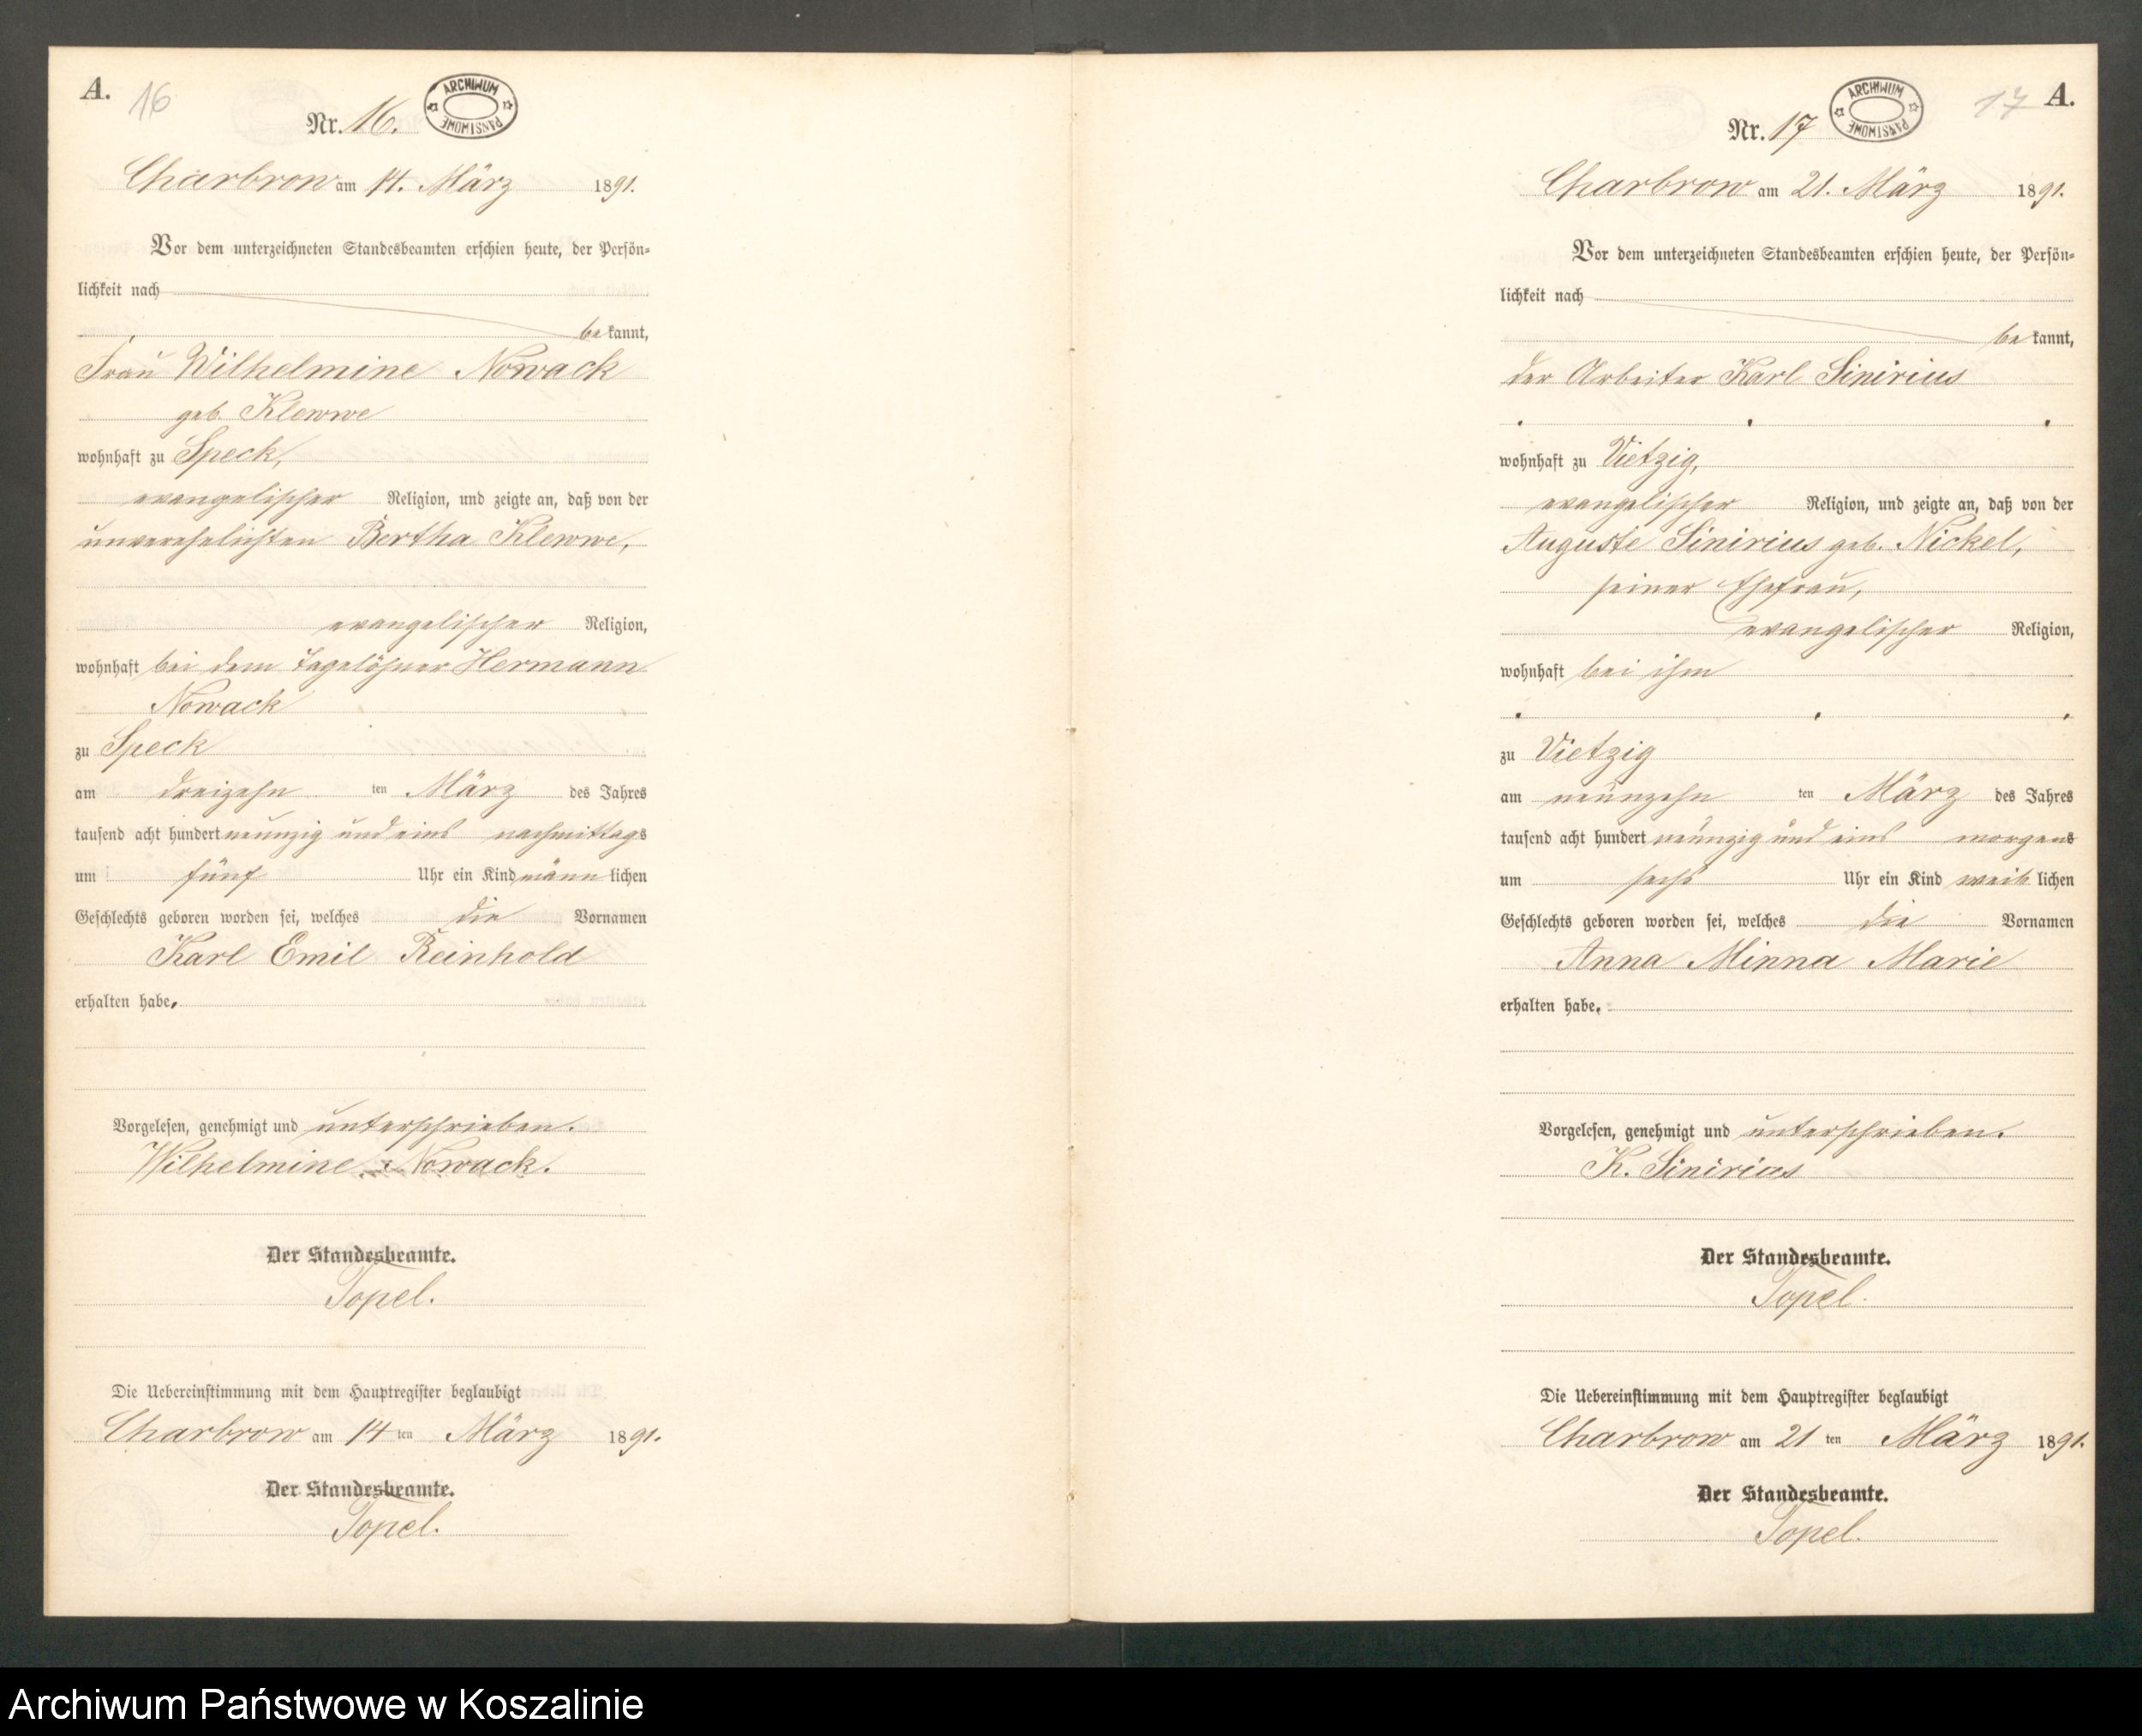 A.
16
Nr. 16.
ARCHIWUM PAŃSTWOWE
Charbrow am 14. März 1891.
Vor dem unterzeichneten Standesbeamten erschien heute, der Persön-
lichkeit nach
bekannt,
Frau Wilhelmine Nowack
geb. Klewwe
wohnhaft zu Speck,
evangelischer Religion, und zeigte an, daß von der
unverehelichten Bertha Klewwe,
evangelischer Religion,
wohnhaft bei dem Tagelöhner Hermann
Nowack
zu Speck
am dreizehn ten März des Jahres
tausend acht hundert neunzig und eins nachmittags
um fünf Uhr ein Kind männlichen
Geschlechts geboren worden sei, welches die Vornamen
Karl Emil Reinhold
erhalten habe.
Vorgelesen, genehmigt und unterschrieben.
Wilhelmine Nowack.
Der Standesbeamte.
Topel.
Die Uebereinstimmung mit dem Hauptregister beglaubigt
Charbrow am 14 ten März 1891.
Der Standesbeamte.
Topel.
17 A.
Nr. 17
ARCHIWUM PAŃSTWOWE
Charbrow am 21. März 1891.
Vor dem unterzeichneten Standesbeamten erschien heute, der Persön-
lichkeit nach
bekannt,
der Arbeiter Karl Sinirius
wohnhaft zu Vietzig,
evangelischer Religion, und zeigte an, daß von der
Auguste Sinirius geb. Nickel,
seiner Ehefrau,
evangelischer Religion,
wohnhaft bei ihm
zu Vietzig
am neunzehn ten März des Jahres
tausend acht hundert neunzig und eins morgens
um sechs Uhr ein Kind weiblichen
Geschlechts geboren worden sei, welches die Vornamen
Anna Minna Marie
erhalten habe.
Vorgelesen, genehmigt und unterschrieben.
K. Sinirius
Der Standesbeamte.
Topel.
Die Uebereinstimmung mit dem Hauptregister beglaubigt
Charbrow am 21 ten März 1891.
Der Standesbeamte.
Topel.
Archiwum Państwowe w Koszalinie